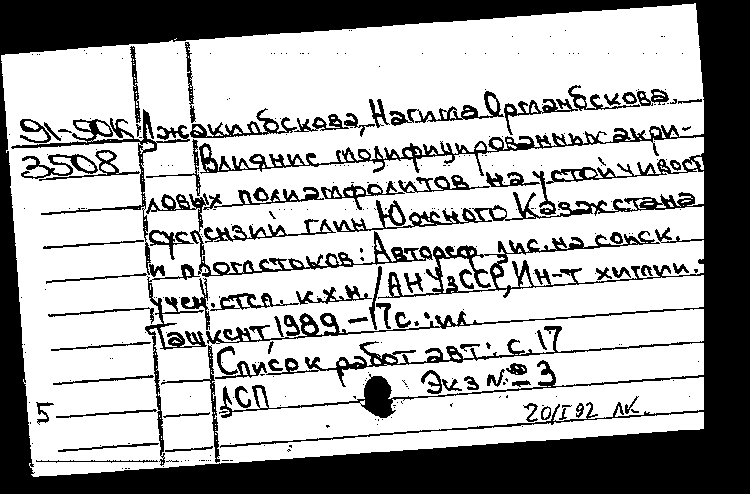 91-50К Джакипбекова, Нагима Орманбекова.
3508 Влияние модифицированных акри-
ловых полиамфолитов на устойчивост
суспензий глин Южного Казахстана
и промстоков: Автореф. дис. на соиск.
учен. степ. к.х.н. / АН УзССР, Ин-т химии.-
Ташкент 1989. - 17 с.: ил.
Список работ авт.: с. 17
ДСП Экз № 3
20/I 92 ЛК.